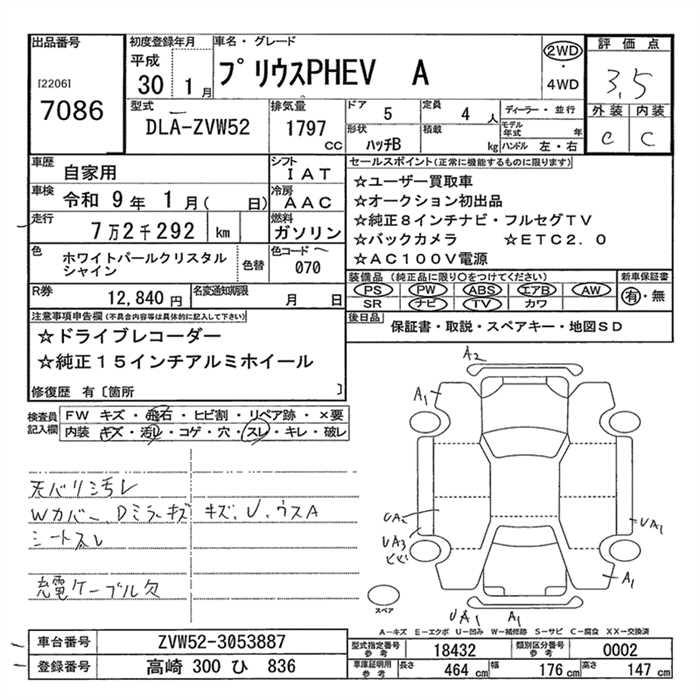 出品番号
[2206]
7086
初度登録年月
平成
30 1月
車名・グレード
プリウスPHEV A
2WD
・
4WD
評価点
3.5
外装 内装
C C
型式
DLA-ZVW52
排気量
1797
CC
ドア 5
定員 4 人
形状 ハッチB
積載 kg
ディーラー・並行
モデル年式 年
ハンドル 左・右
車歴 自家用
シフト IAT
車検 令和 9年 1月( 日)
冷房 AAC
走行 7万2千292 km
燃料 ガソリン
色 ホワイトパールクリスタルシャイン
色替
色コード 070
R券 12,840円
名変通知期限 月 日
セールスポイント(正常に機能するものに限ります)
☆ユーザー買取車
☆オークション初出品
☆純正8インチナビ・フルセグTV
☆バックカメラ ☆ETC2.0
☆AC100V電源
装備品 (純正品に限り○をつけてください)
PS PW ABS エアB AW
SR ナビ TV カワ
新車保証書
有・無
後日品 保証書・取説・スペアキー・地図SD
注意事項申告欄(不具合内容等は具体的に記入して下さい)
☆ドライブレコーダー
☆純正15インチアルミホイール
修復歴 有〔箇所 〕
検査員記入欄
FW キズ・飛石・ヒビ割・リペア跡・×要
内装 キズ・汚レ・コゲ・穴・スレ・キレ・破レ
天バリ汚レ
Wカバー、Dミラーキズ キズ、U、ウスA
シートスレ
充電ケーブル欠
A2
A1
UA2
UA3
ヒビ
UA1
A1
UA1
A1
スペア
A－キズ E－エクボ U－凹み W－補修跡 S－サビ C－腐食 XX－交換済
車台番号 ZVW52-3053887
登録番号 高崎 300 ひ 836
型式指定番号 参考 18432
類別区分番号 参考 0002
車庫証明用 参考 長さ 464 cm 幅 176 cm 高さ 147 cm